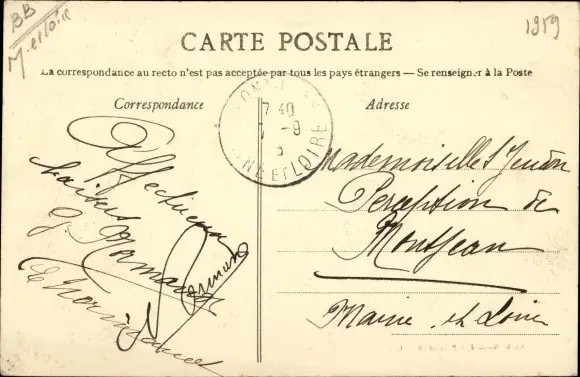 BB
M-et-loire
1959
CARTE POSTALE
La correspondance au recto n'est pas acceptée par tous les pays étrangers — Se renseigner à la Poste
Correspondance
Adresse
7 40
7 -9
NE ET LOIRE
Affectueux
baisers
G. Normand
Mademoiselle
Perception de
Montjean
Maine et Loire